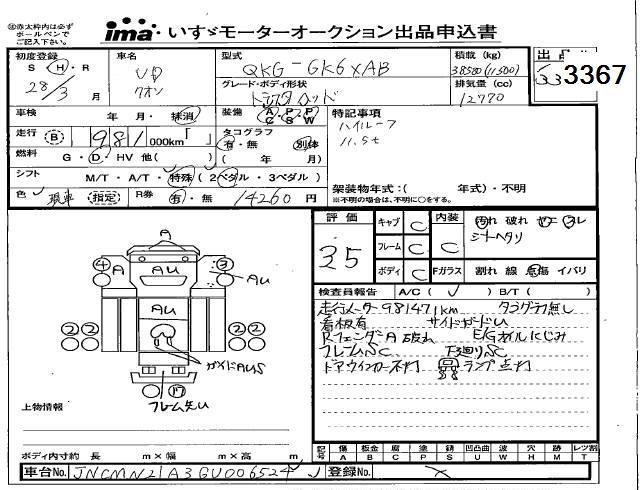 ※赤太枠内は必ずボールペンでご記入下さい。
ima いすゞモーターオークション出品申込書
初度登録 S・H・R 28/3 月
車名 UD クオン
型式 QKG-GK6XAB
積載 (kg) 38580(11500)
出品
3367
グレード・ボディ形状 トラクタヘッド
排気量 (cc) 12770
車検 年 月・抹消
装備 A C P S P W
特記事項
ハイルーフ
11.5t
走行 B 981,000km
タコグラフ 有・無 別体 ( 年 月)
燃料 G・D・HV 他( )
シフト M/T・A/T・特殊 (2ペダル・3ペダル)
架装物年式:( 年式)・不明
※不明の場合は、不明に○をする。
色 現車 (指定) R券 有・無 14260 円
評価 35
キャブ C 内装 C 汚れ 破れ
シートヘタリ
フレーム C
ボディ C Fガラス 割れ 線 点傷 イバリ
検査員報告 A/C( ) B/T( )
走行メーター981471km タコグラフ無し
看板有 サイドガードU
RフェンダーA 破れ E/Gオイルにじみ
フレームSC 下廻りSC
ドアウインカー不灯 ランプ点灯
A
④ A AU ③ AU
AU
②② ②②
ガイドAUS
⑰
上物情報
ボディ内寸約 長 m×幅 m×高 m
記号 傷 A 板金 B 腐 C 塗 P 錆 S 凹凸曲 U 波 W 穴 H 跡 M レツ割 T
車台No. JNCMN21A3GU006524 登録No.